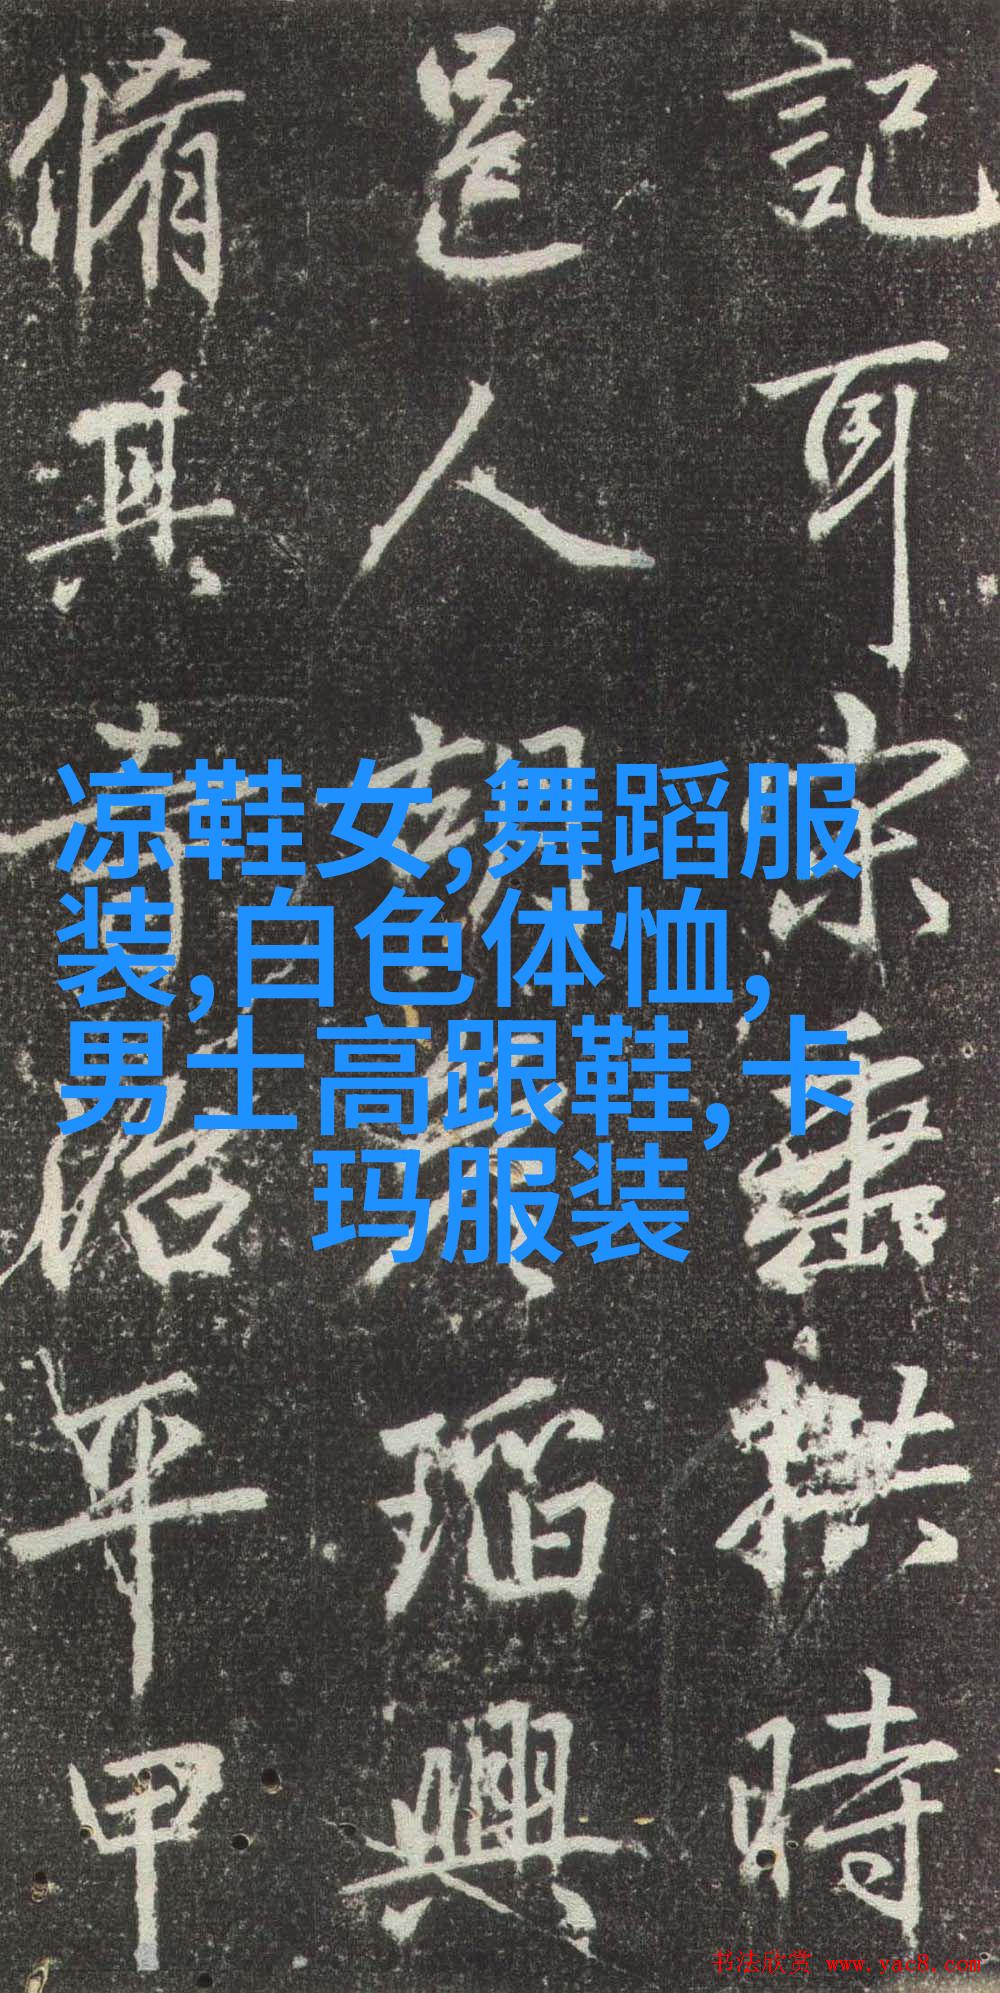 記耳宗垂拱時
邑人胡瑫興
脩其治平甲
凉鞋女,舞蹈服
装,白色体恤,
男士高跟鞋, 卡
玛服装
书法欣赏 www.yac8.com